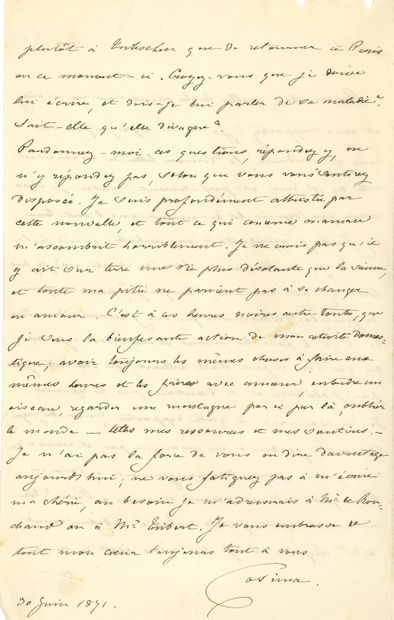 plutôt à Tribschen que de retourner à Paris
en ce moment-ci. Croyez-vous que je doive
lui écrire, et dois-je lui parler de sa maladie?
Sait-elle qu'elle divague?
Pardonnez-moi ces questions, répondez y, ou
n'y répondez pas, selon que vous vous sentirez
disposée. Je suis profondément attristée par
cette nouvelle, et tout ce qui concerne maman
m'assombrit horriblement. Je ne crois pas qu'il
y ait sur terre une vie plus désolante que la sienne,
et toute ma pitié ne parvient pas à se changer
en amour. C'est à ces heures noires entre toutes, que
je sens la bienfesante action de mon activité domes-
tique; avoir toujours les mêmes choses à faire aux
mêmes heures et les faire avec amour, entendre un
oiseau regarder une montagne par ci par là, oublier
le monde — telles mes ressources et mes soutiens. —
Je n'ai pas la force de vous en dire davantage
aujourd'hui, ne vous fatiguez pas à m'écrire
ma chérie, au besoin je m'adresserais à Mr de Ron-
chaud ou à Mr Guibert. Je vous embrasse de
tout mon cœur toujours tout à vous
Cosima.
30 Juin 1871.